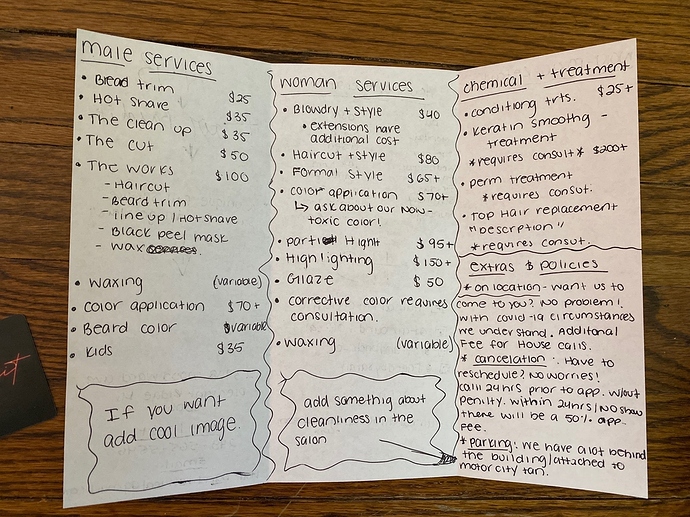 male services
Bread trim $25
Hot shave $35
The clean up $35
The cut $50
The works $100
- Haircut
- Beard trim
- line up / Hot shave
- Black peel mask
- wax
waxing (variable)
color application $70+
Beard color variable
Kids $35
If you want
add cool image.
woman services
Blowdry + style $40
extensions have
additional cost
Haircut + style $80
Formal style $65+
color application $70+
↳ ask about our non-
toxic color!
partial Hight $95+
Highlighting $150+
Glaze $50
corrective color requires
consultation.
waxing (variable)
add something about
cleanliness in the
salon
chemical + treatment
conditiong trts. $25+
Keratin smoothg -
treatment
*requires consult* $200+
perm treatment
*requires consut.
Top Hair replacement
"Description"
*requires consut.
extras $ policies
* on location - want us to
come to you? No problem!
with covid-19 circumstances
we understand. Additonal
Fee for House calls.
* cancelation: Have to
reschedule? No worries!
call 24hrs prior to app. w/out
penilty. within 24hrs/No show
there will be a 50% app.
Fee.
* parking: we have a lot behind
the building/attached to
motor city tan.